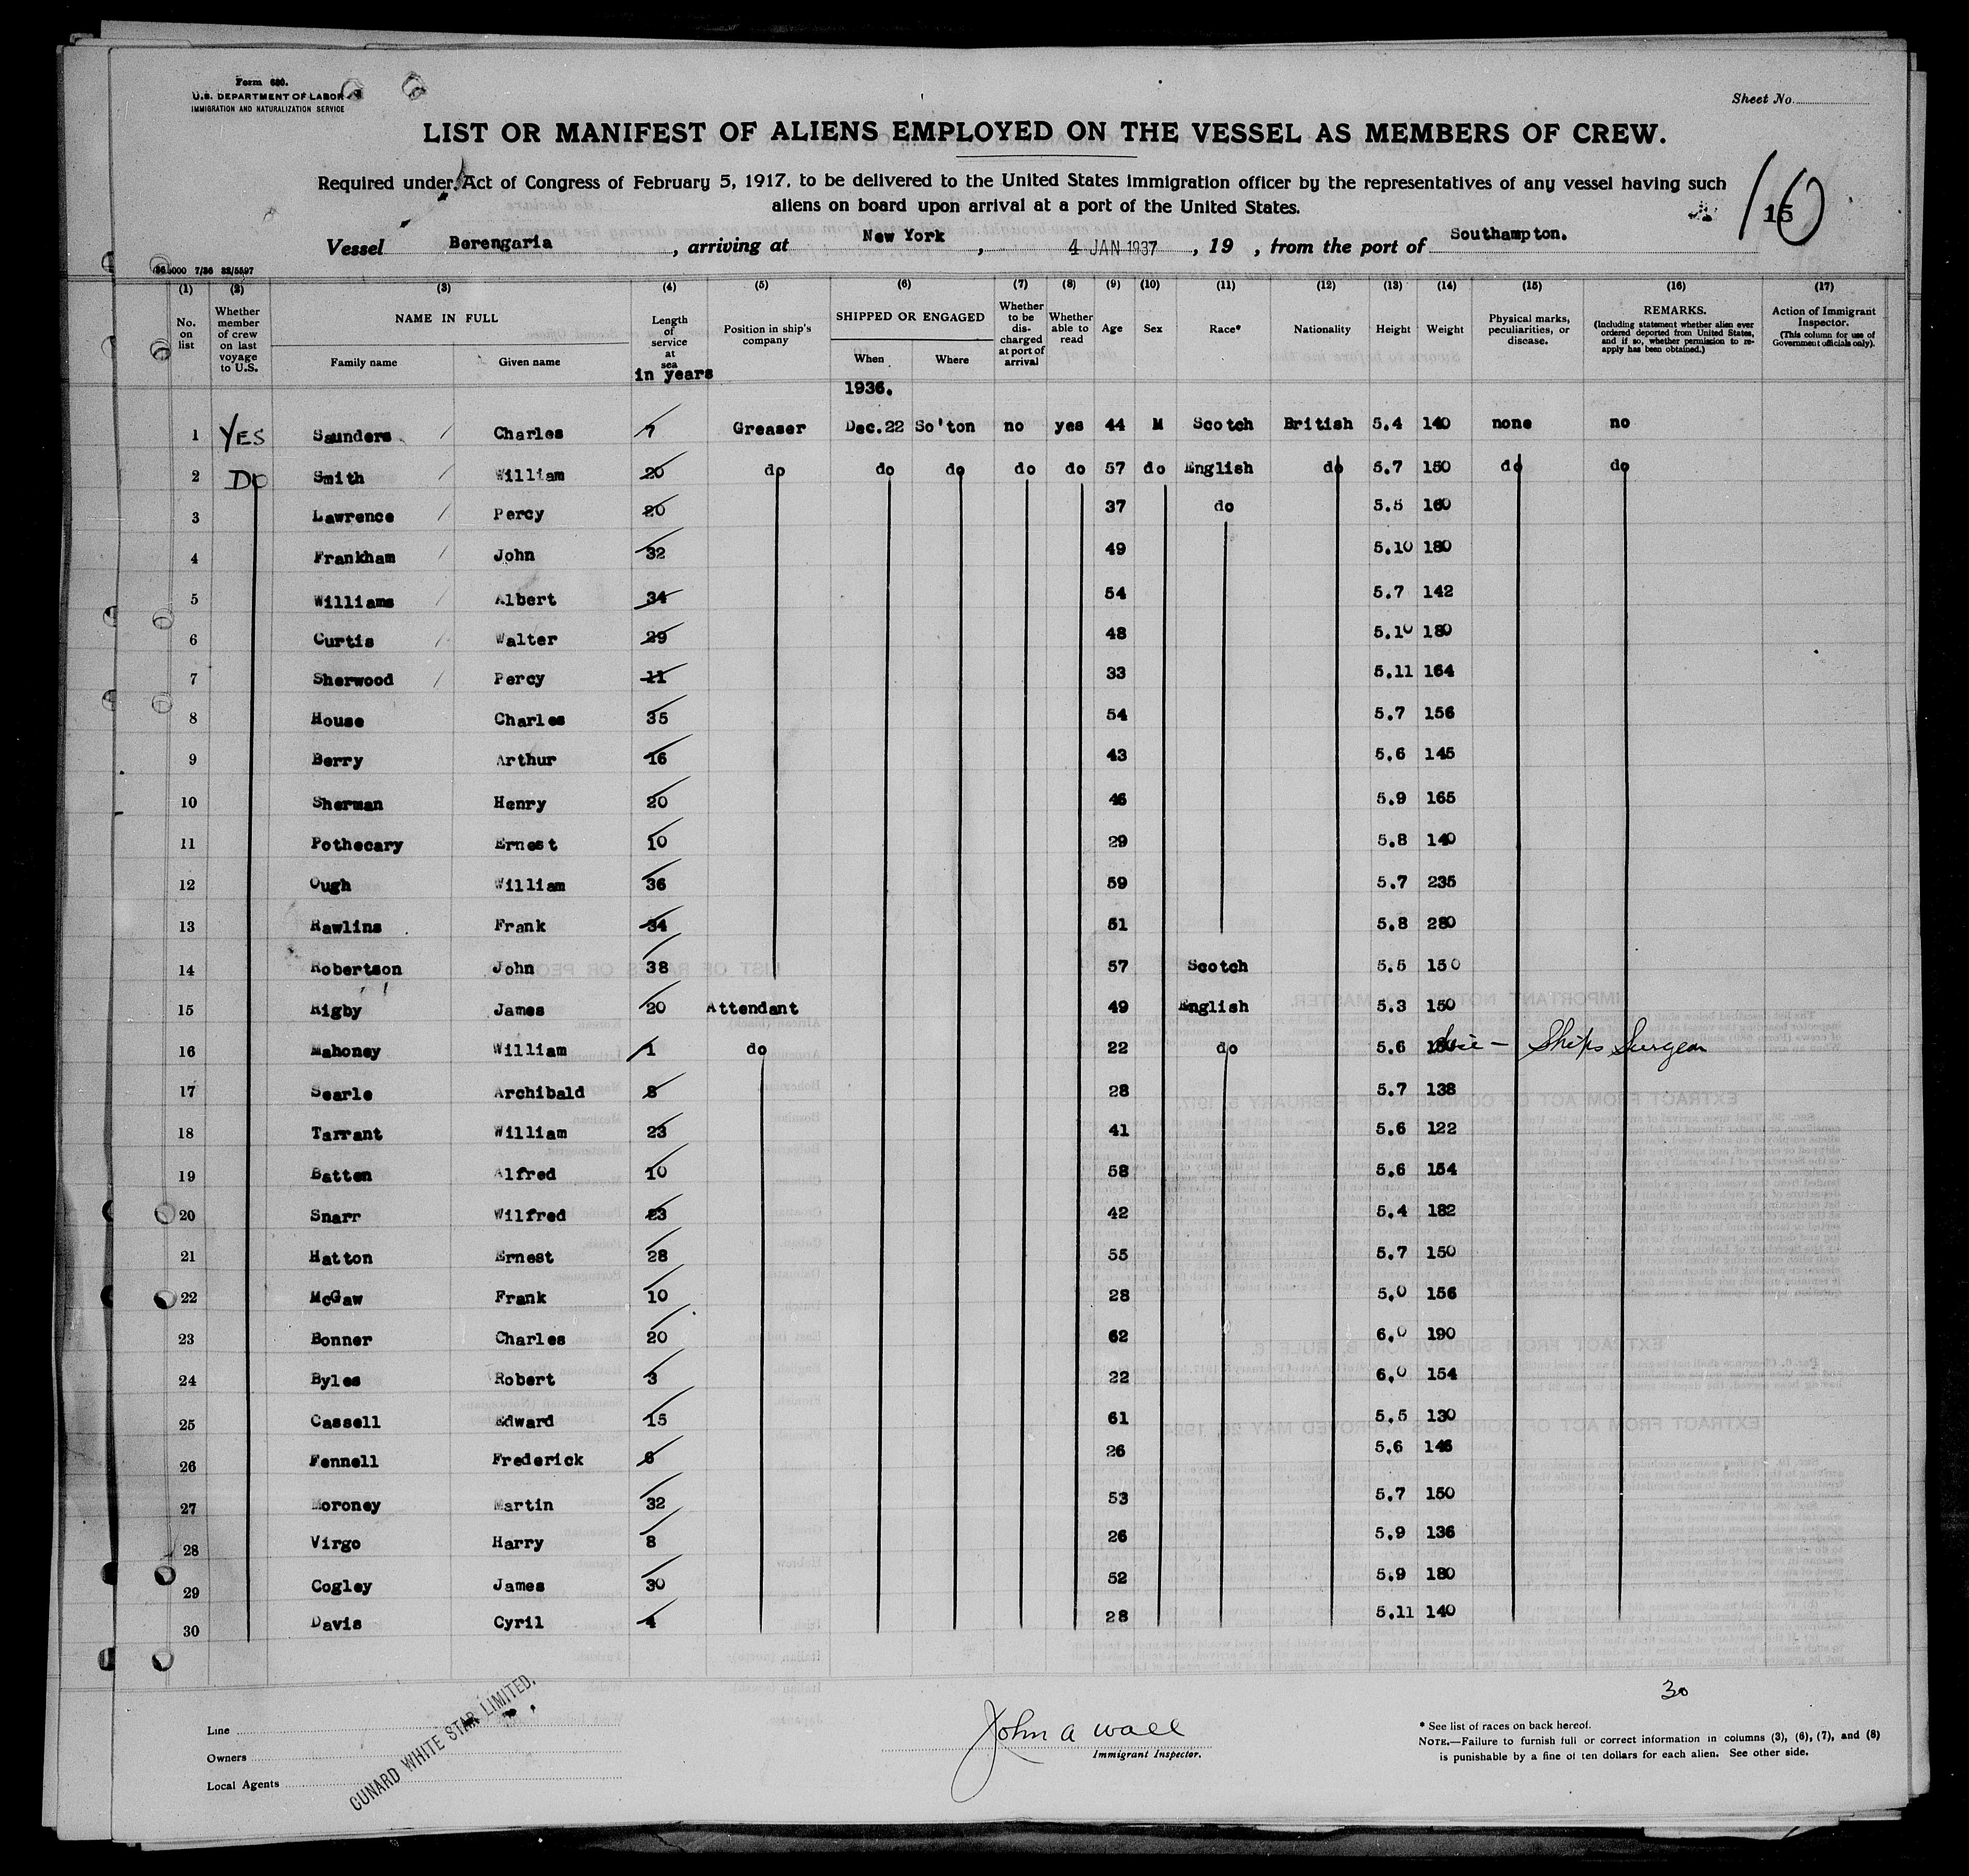 Form 680.
U.S. DEPARTMENT OF LABOR
IMMIGRATION AND NATURALIZATION SERVICE
Sheet No.
LIST OR MANIFEST OF ALIENS EMPLOYED ON THE VESSEL AS MEMBERS OF CREW.
Required under Act of Congress of February 5, 1917, to be delivered to the United States immigration officer by the representatives of any vessel having such
aliens on board upon arrival at a port of the United States.
15
16
Vessel Berengaria, arriving at New York, 4 JAN 1937, 19 , from the port of Southampton.
(1) (2) (3) (4) (5) (6) (7) (8) (9) (10) (11) (12) (13) (14) (15) (16) (17)
No. on list
Whether member of crew on last voyage to U.S.
NAME IN FULL
Family name Given name
Length of service at sea
in years
Position in ship's company
SHIPPED OR ENGAGED
When Where
Whether to be discharged at port of arrival
Whether able to read
Age Sex Race* Nationality Height Weight
Physical marks, peculiarities, or disease.
REMARKS.
(Including statement whether alien ever ordered deported from United States, and if so, whether permission to reapply has been obtained.)
Action of Immigrant Inspector.
(This column for use of Government officials only).
1936.
1 YES Saunders Charles 7 Greaser Dec.22 So'ton no yes 44 M Scotch British 5.4 140 none no
2 DO Smith William 20 do do do do do 57 do English do 5.7 150 do do
3 Lawrence Percy 20 37 do 5.5 160
4 Frankham John 32 49 5.10 180
5 Williams Albert 34 54 5.7 142
6 Curtis Walter 29 48 5.10 180
7 Sherwood Percy 11 33 5.11 164
8 House Charles 35 54 5.7 156
9 Berry Arthur 16 43 5.6 145
10 Sherman Henry 20 46 5.9 165
11 Pothecary Ernest 10 29 5.8 140
12 Ough William 36 59 5.7 235
13 Rawlins Frank 34 51 5.8 280
14 Robertson John 38 57 Scotch 5.5 150
15 Rigby James 20 Attendant 49 English 5.3 150
16 Mahoney William 1 do 22 do 5.6 Ships Surgeon
17 Searle Archibald 8 28 5.7 138
18 Tarrant William 23 41 5.6 122
19 Batten Alfred 10 58 5.6 154
20 Snarr Wilfred 23 42 5.4 182
21 Hatton Ernest 28 55 5.7 150
22 McGaw Frank 10 28 5.0 156
23 Bonner Charles 20 62 6.0 190
24 Byles Robert 3 22 6.0 154
25 Cassell Edward 15 61 5.5 130
26 Fennell Frederick 6 26 5.6 146
27 Moroney Martin 32 53 5.7 150
28 Virgo Harry 8 26 5.9 136
29 Cogley James 30 52 5.9 180
30 Davis Cyril 4 28 5.11 140
30
Line
Owners
Local Agents
CUNARD WHITE STAR LIMITED.
John A Wall
Immigrant Inspector.
* See list of races on back hereof.
NOTE.—Failure to furnish full or correct information in columns (3), (6), (7), and (8)
is punishable by a fine of ten dollars for each alien. See other side.